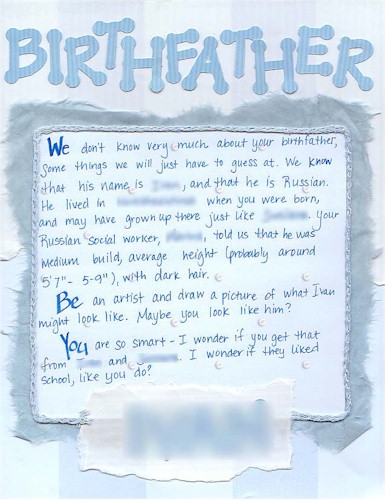 BIRTHFATHER
We don't know very much about your birthfather,
Some things we will just have to guess at. We know
that his name is , and that he is Russian.
He lived in when you were born,
and may have grown up there just like . Your
Russian social worker, , told us that he was
medium build, average height (probably around
5'7"- 5-9"), with dark hair.
Be an artist and draw a picture of what Ivan
might look like. Maybe you look like him?
You are so smart - I wonder if you get that
from and . I wonder if they liked
school, like you do?